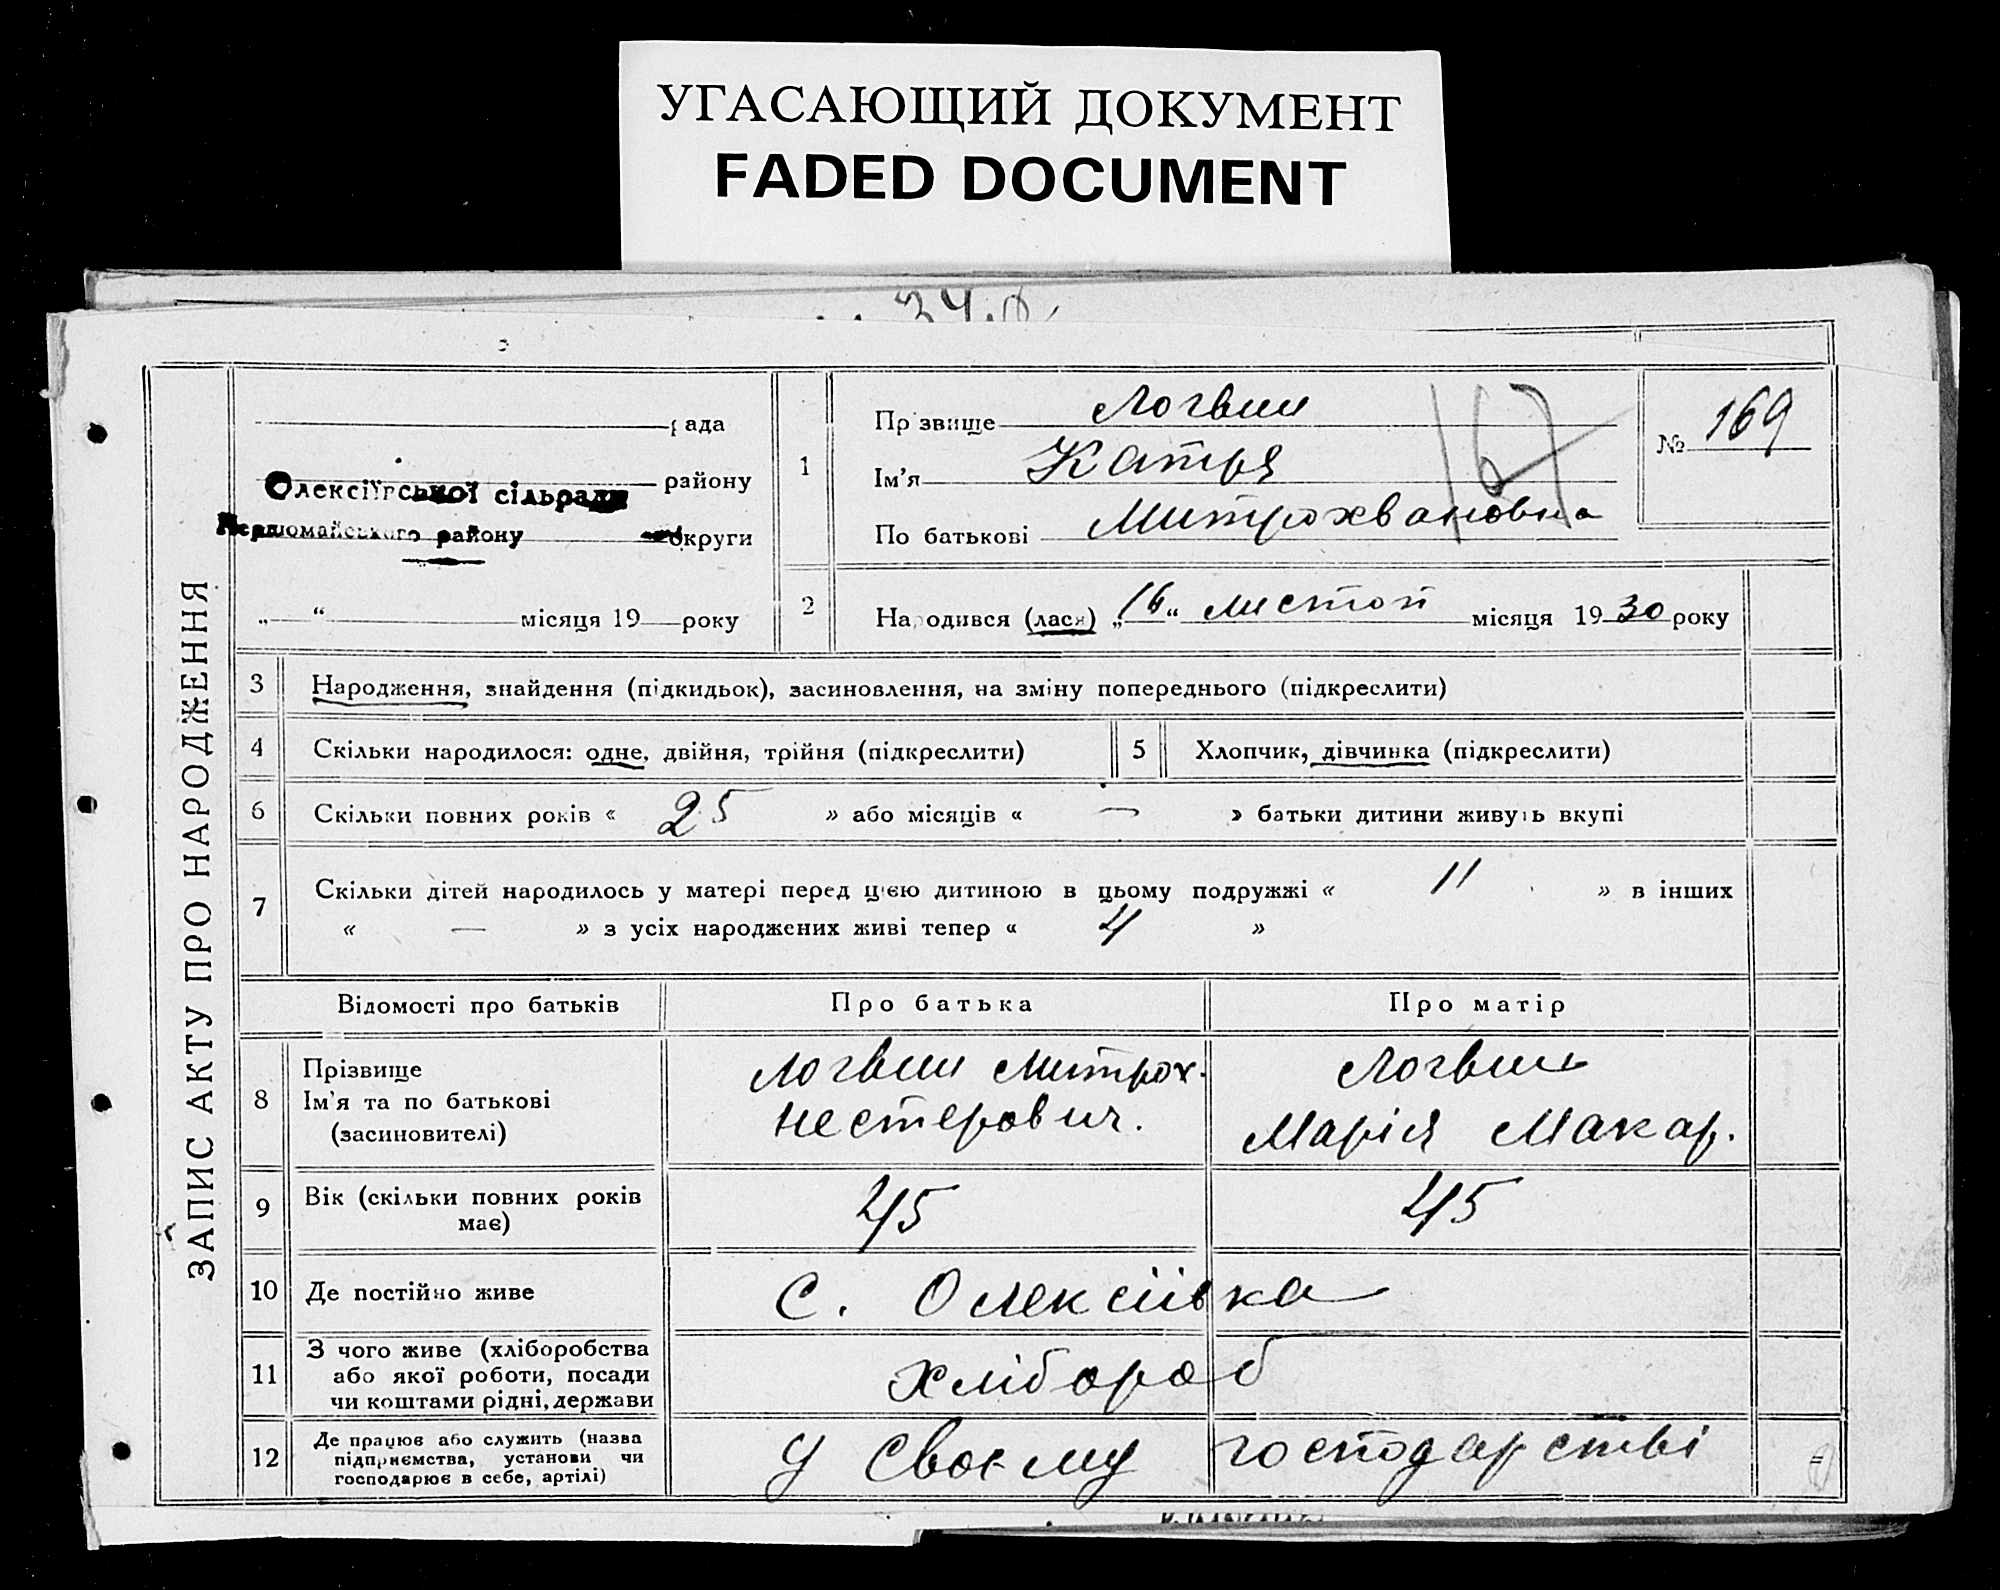 УГАСАЮЩИЙ ДОКУМЕНТ
FADED DOCUMENT
ЗАПИС АКТУ ПРО НАРОДЖЕННЯ
рада
Олексіївської сільради району
Первомайського району округи
„ “ місяця 19 року
1 Прізвище Логвин
Ім’я Катря
По батькові Митрохвановна
167
№ 169
2 Народився (лася) „16“ листоп місяця 1930 року
3 Народження, знайдення (підкидьок), засиновлення, на зміну попереднього (підкреслити)
4 Скільки народилося: одне, двійня, трійня (підкреслити) 5 Хлопчик, дівчинка (підкреслити)
6 Скільки повних років « 25 » або місяців « — » батьки дитини живуть вкупі
7 Скільки дітей народилось у матері перед цією дитиною в цьому подружжі « 11 » в інших
« — » з усіх народжених живі тепер « 4 »
Відомості про батьків Про батька Про матір
8 Прізвище
Ім’я та по батькові
(засиновителі)
Логвин Митрох.
Нестерович.
Логвин
Марія Макар.
9 Вік (скільки повних років
має)
45 45
10 Де постійно живе с. Олексіївка
11 З чого живе (хліборобства
або якої роботи, посади
чи коштами рідні, держави
хлібороб
12 Де працює або служить (назва
підприємства, установи чи
господарює в себе, артілі)
у своєму господарстві